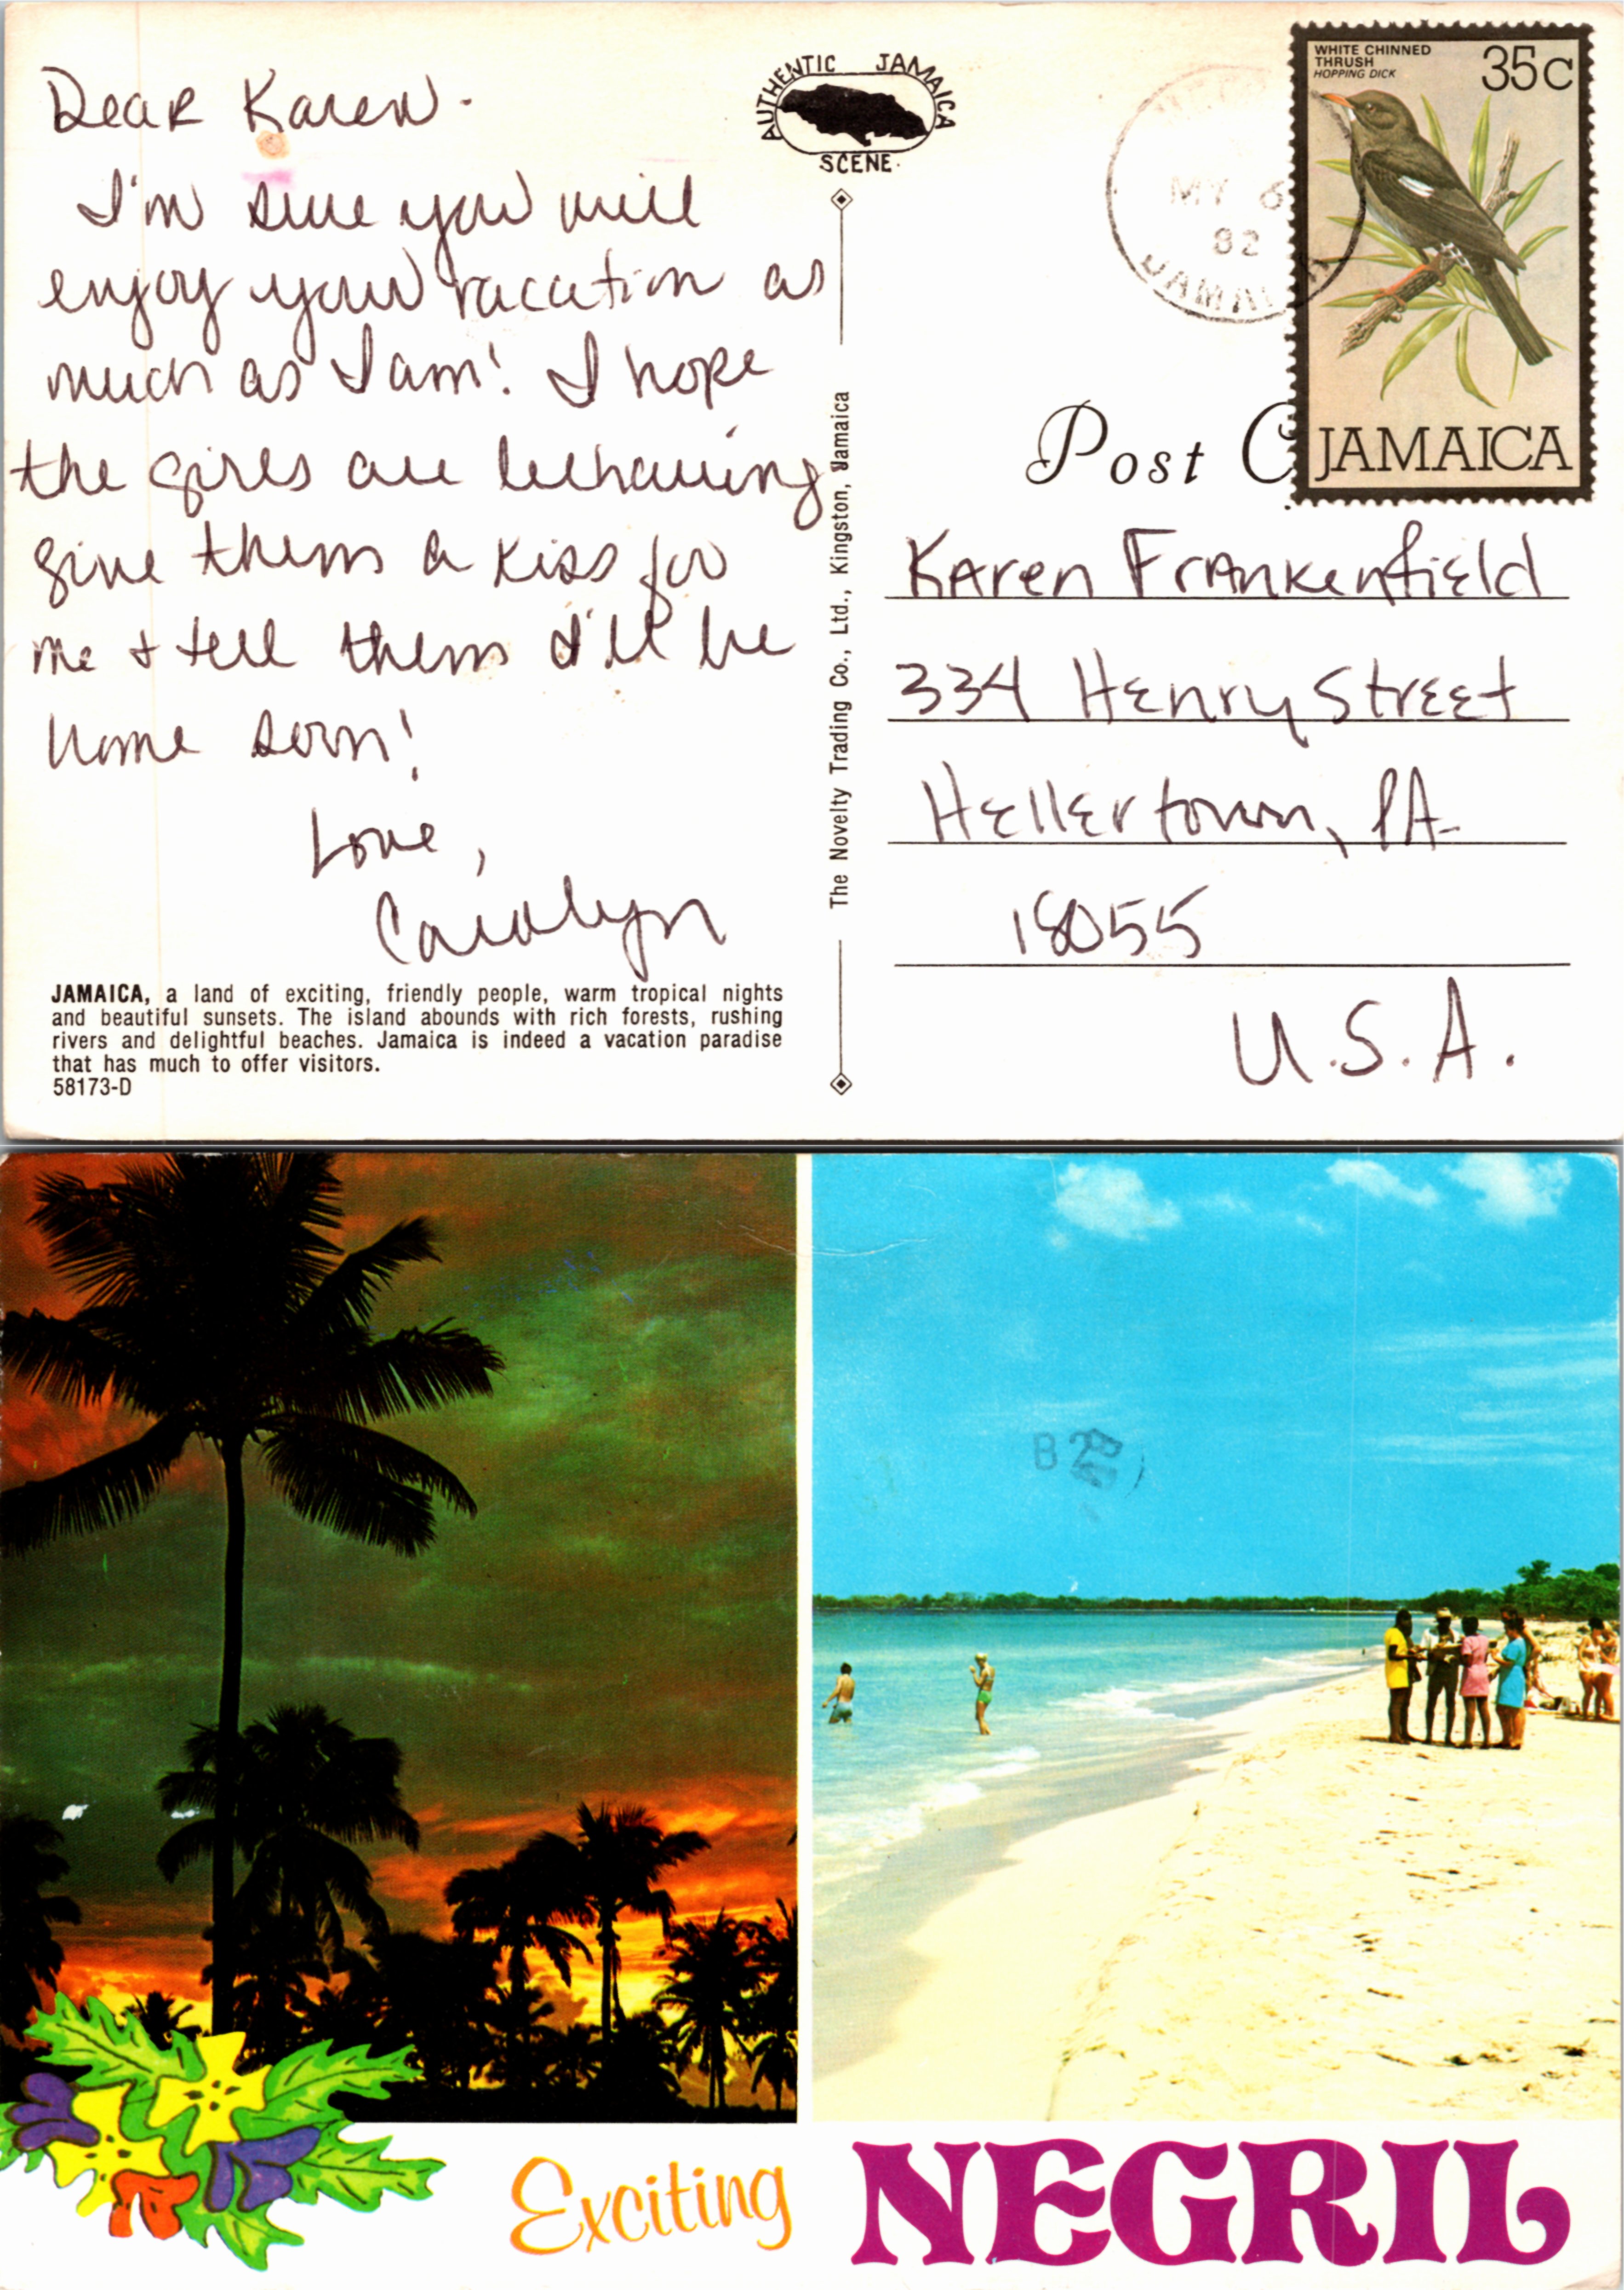 Dear Karen.
I'm sure you will
enjoy your vacation as
much as I am! I hope
the girls are behaving
give them a kiss for
me & tell them I'll be
home soon!
Love,
Carolyn
JAMAICA, a land of exciting, friendly people, warm tropical nights
and beautiful sunsets. The island abounds with rich forests, rushing
rivers and delightful beaches. Jamaica is indeed a vacation paradise
that has much to offer visitors.
58173-D
AUTHENTIC JAMAICA
SCENE.
The Novelty Trading Co., Ltd., Kingston, Jamaica
MY 6
82
JAMAICA
WHITE CHINNED
THRUSH
HOPPING DICK
35c
JAMAICA
Post C
Karen Frankenfield
334 Henry Street
Hellertown, PA-
18055
U.S.A.
B 2
Exciting NEGRIL